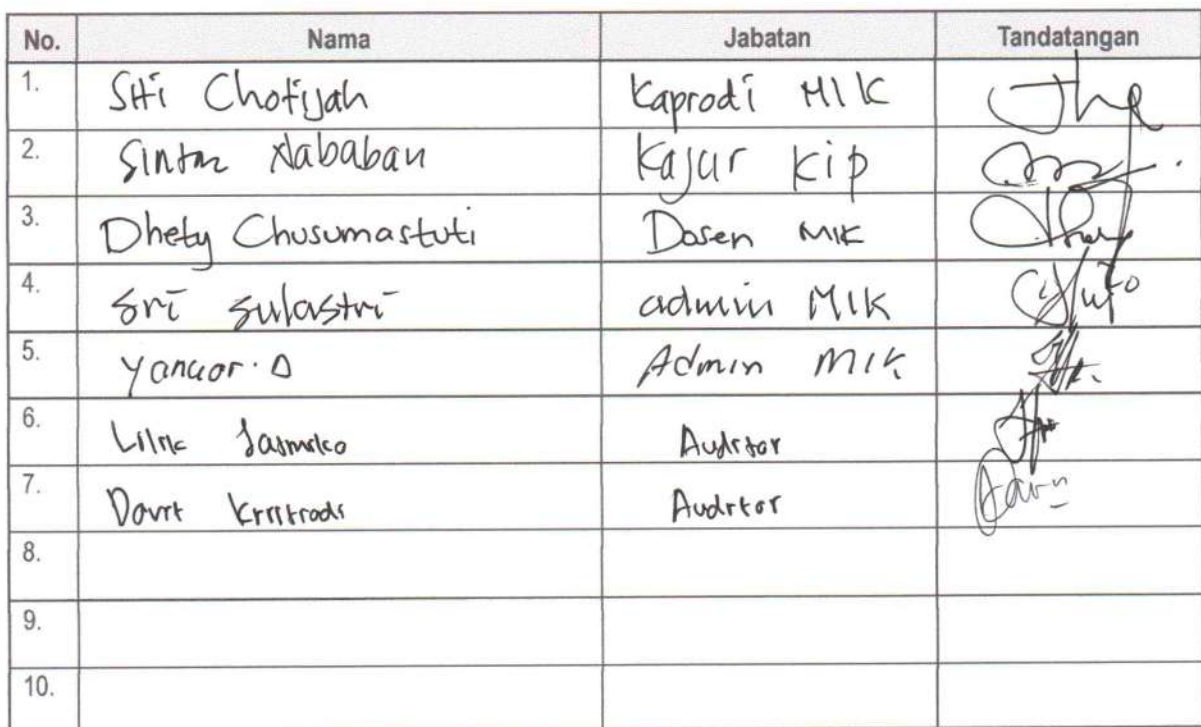 No. Nama Jabatan Tandatangan
1. Siti Chofijah Kaprodi MIK
2. Sintar Nababan Kajur KIP
3. Dhety Chusumastuti Dosen MIK
4. Sri Sulastri admin MIK
5. Yanuar. D Admin MIK
6. Lilik Auditor
7. Auditor
8.
9.
10.